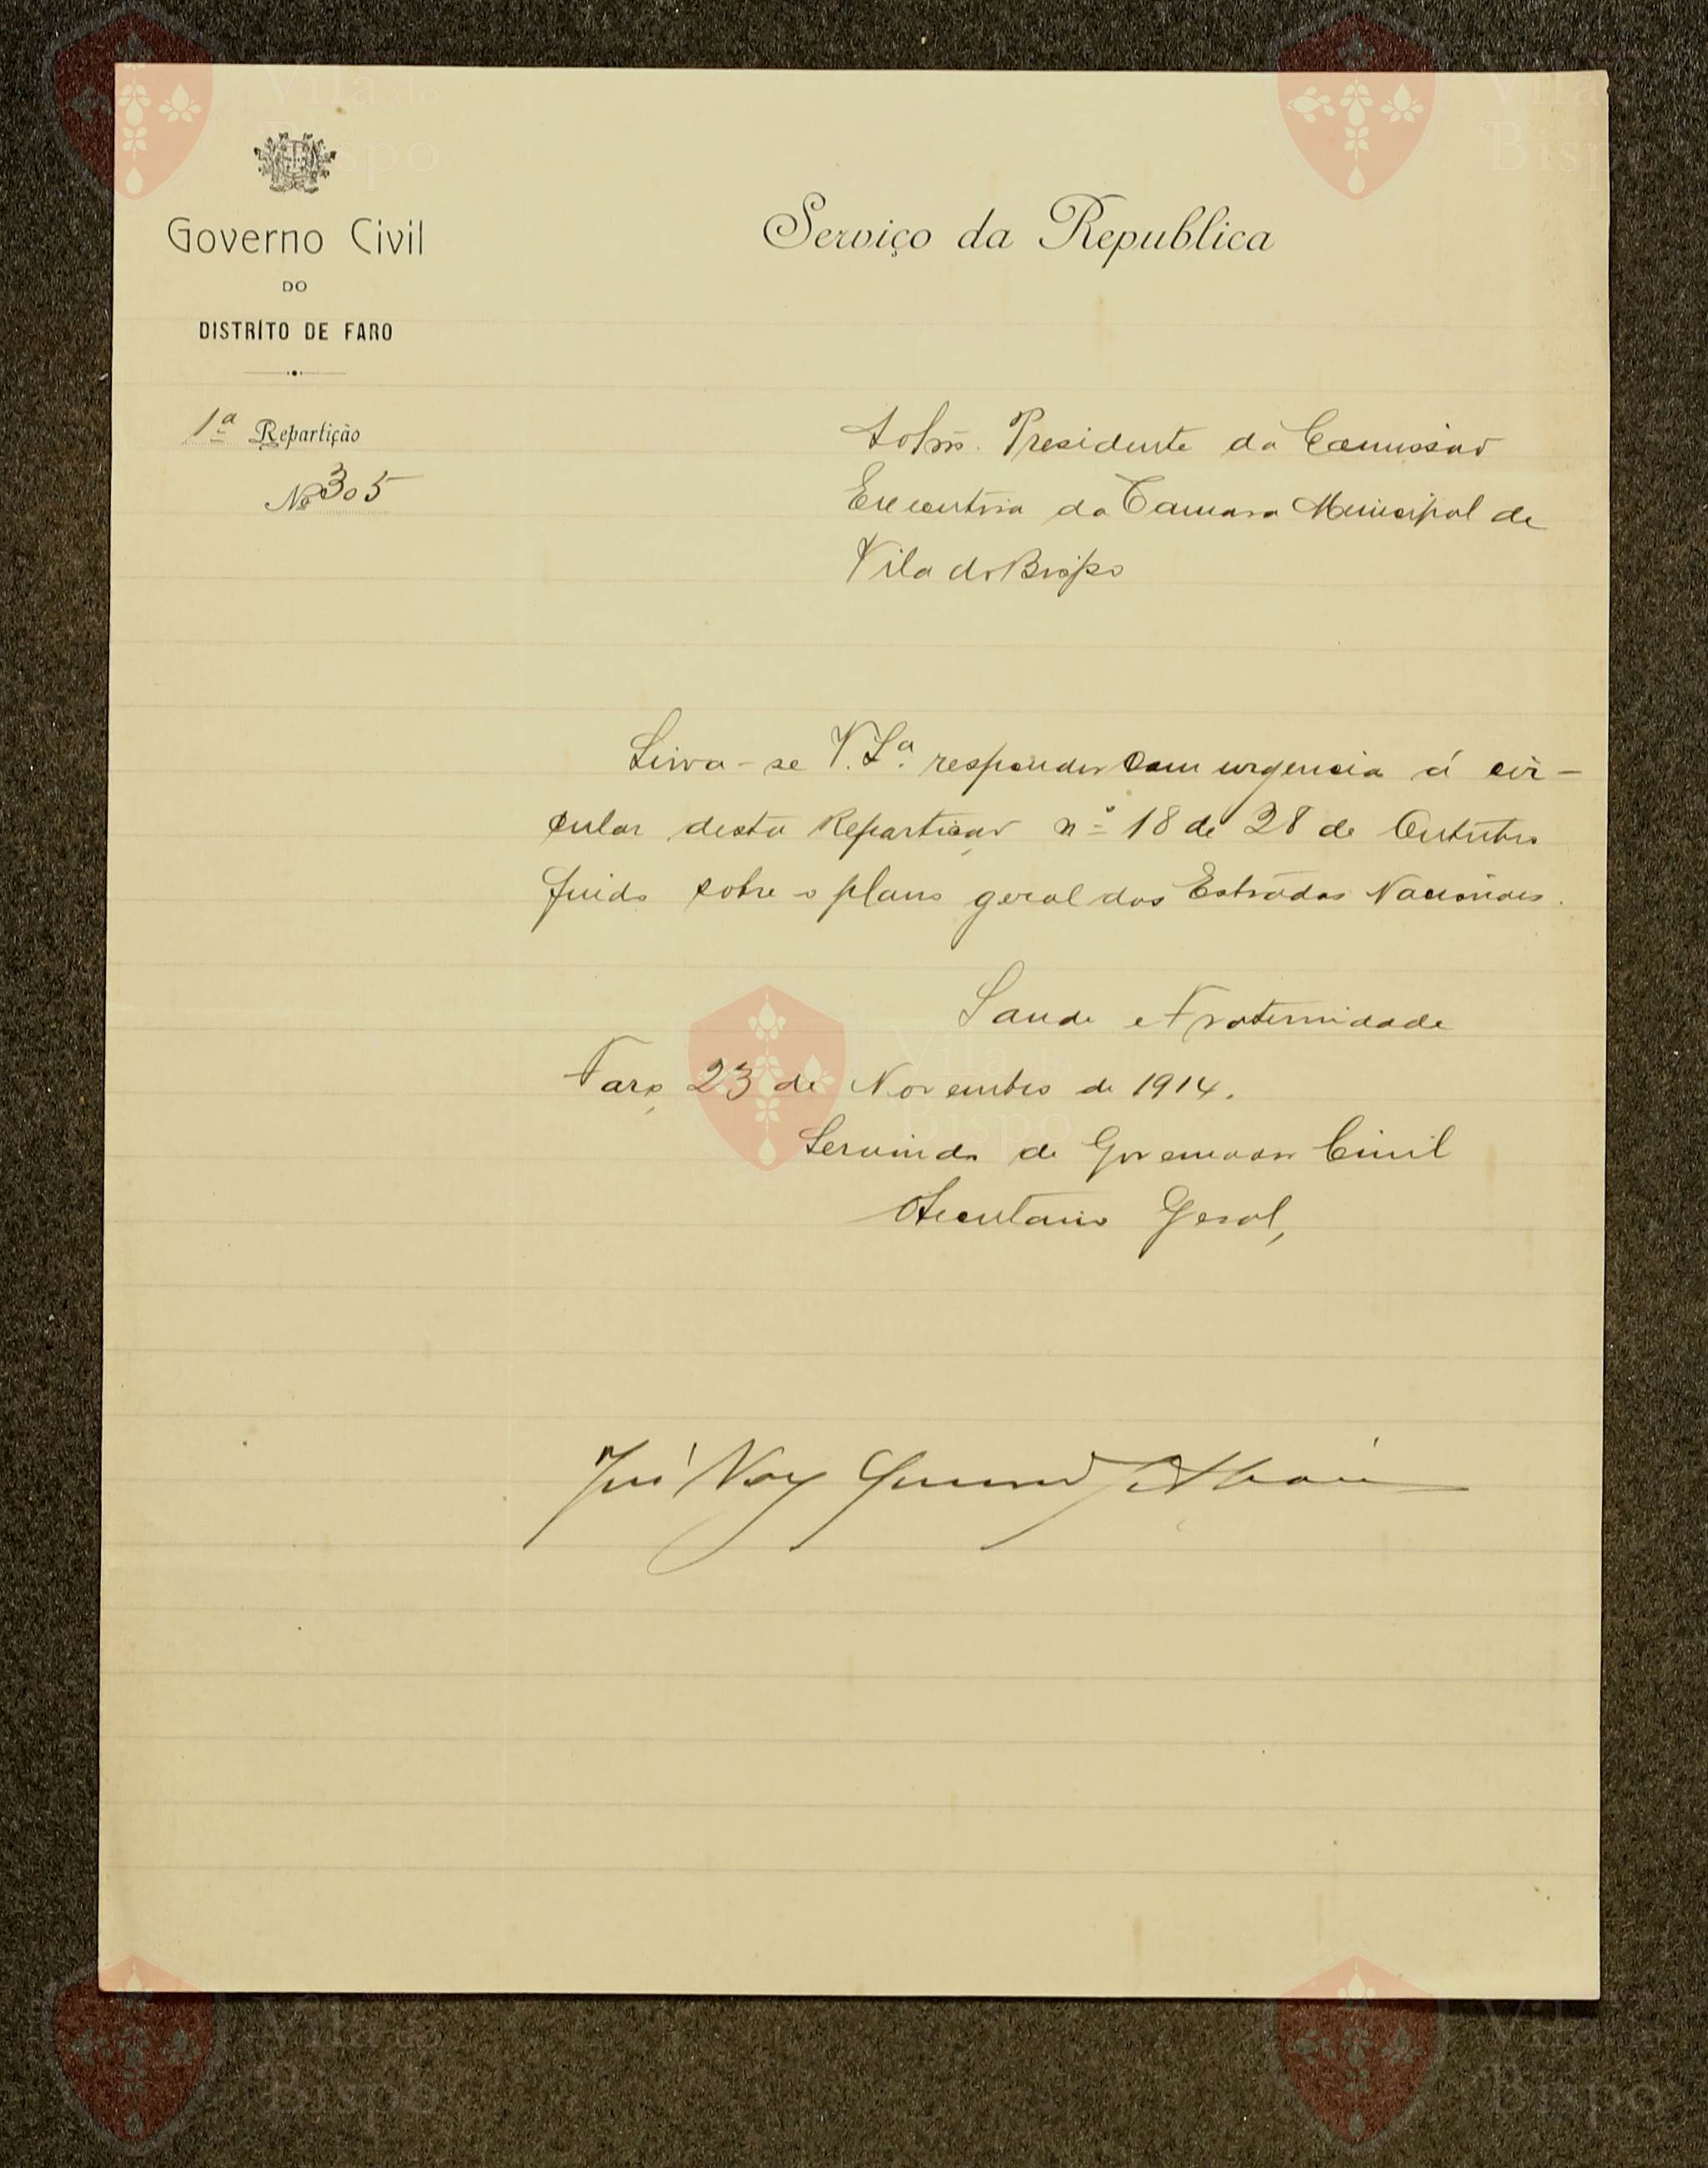 Governo Civil
DO
DISTRITO DE FARO
1ª Repartição
Nº 305
Serviço da Republica
Presidente da Comissão
Executiva da Camara Municipal de
Vila do Bispo
Sirva-se V. Sª. responder com urgencia á cir-
cular desta Repartição nº 18 de 28 de Outubro
findo sobre o plano geral das Estradas Nacionais.
Saude e Fraternidade
Faro, 23 de Novembro de 1914.
Servindo de Governador Civil
O Secretario Geral,
José Vaz
Vila do
Bispo
Vila
Bisp
Vila do
Bispo
Vila do
Bispo
Vila
Bispo